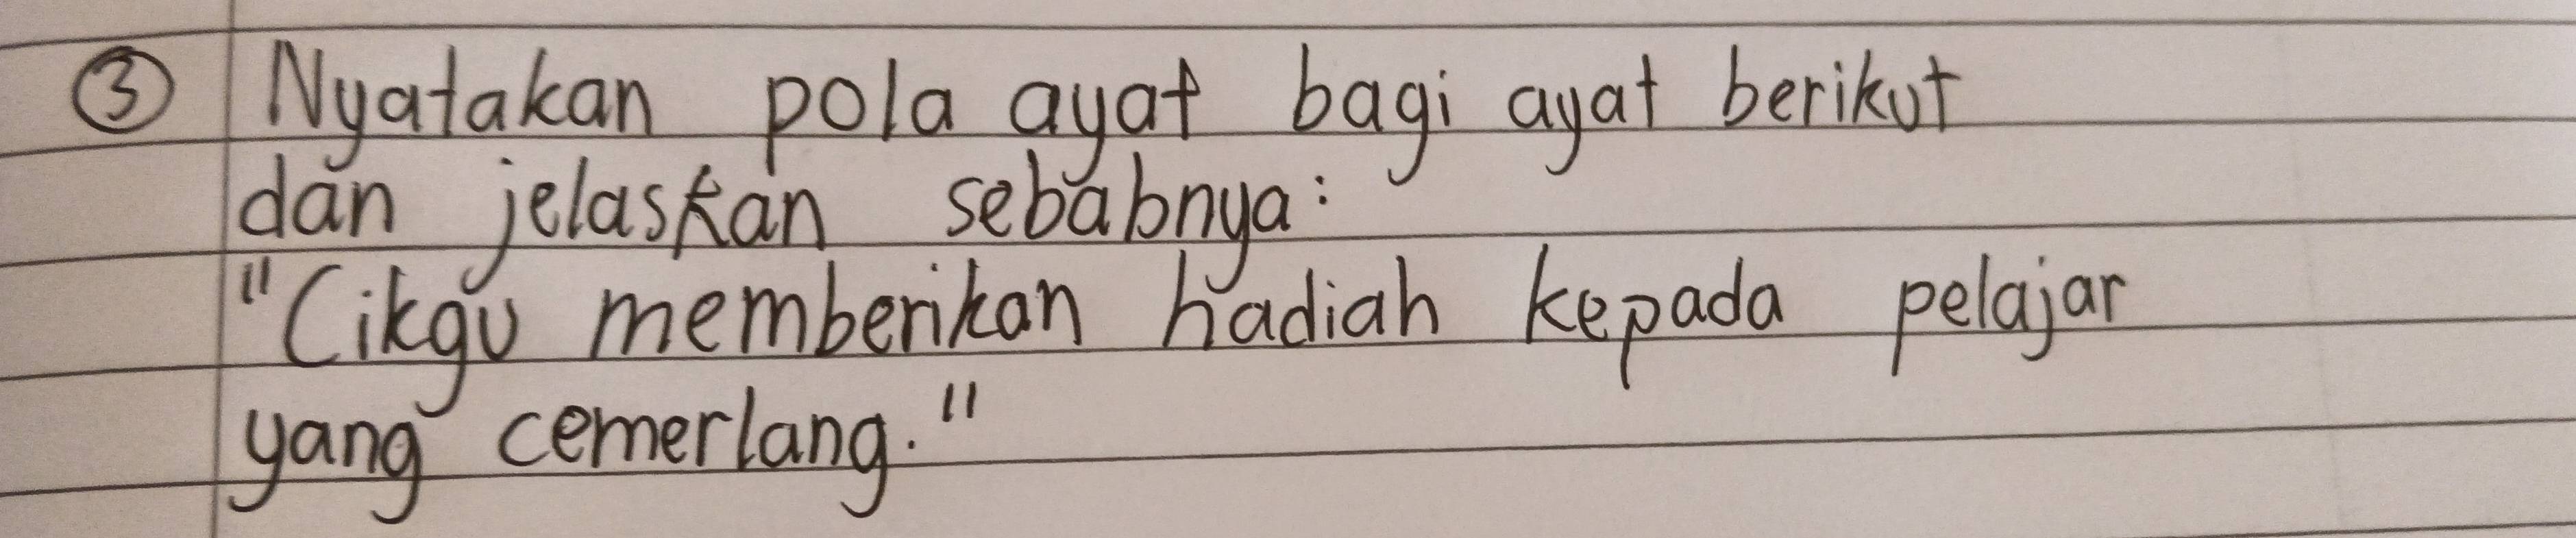 ③ Nyatakan pola ayat bagi ayat berikut
dan jelaskan sebabnya:
"Cikgu memberikan hadiah kepada pelajar
yang cemerlang."